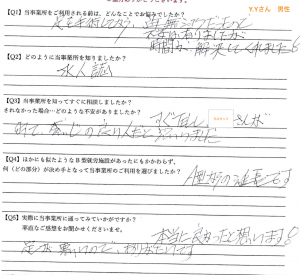 Y.Yさん 男性
【Q1】当事業所をご利用される前は、どんなことでお悩みでしたか？
足を手術してより、
不安は有りましたが
時間が解決してくれました
【Q2】どのように当事業所を知りましたか？
求人誌
【Q3】当事業所を知ってすぐに相談しましたか？
されなかった場合…どのような不安がありましたか？
すぐ電話し さんが
感じの良い人だと思いました
【Q4】ほかにも似たようなB型就労施設があったにもかかわらず、
何（どの部分）が決め手となって当事業所のご利用を選びましたか？
A型紗の延長です
【Q5】実際に当事業所に通ってみていかがですか？
率直なご感想をお聞かせくださいませ。
本当に良かったと思います！
足が悪いので、